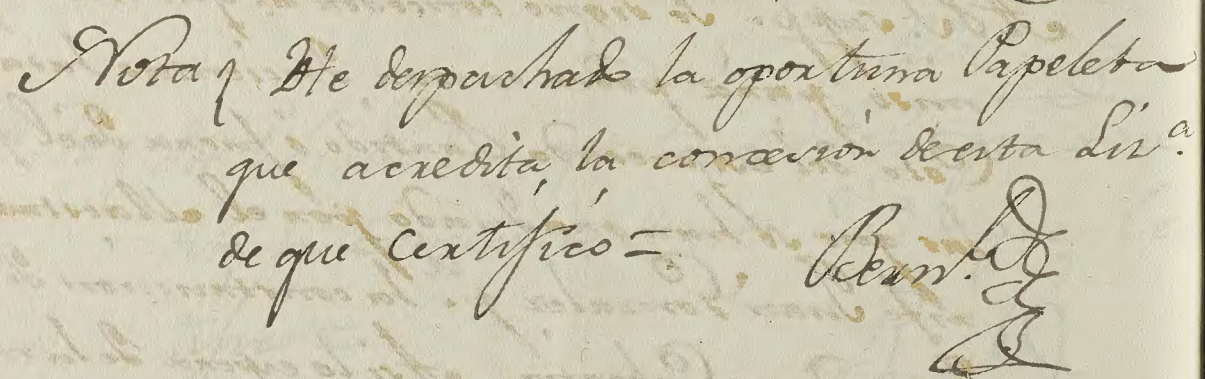 Nota He despachado la oportuna Papeleta
que acredita, la concesión de esta Liz.ª
de que Certifico =